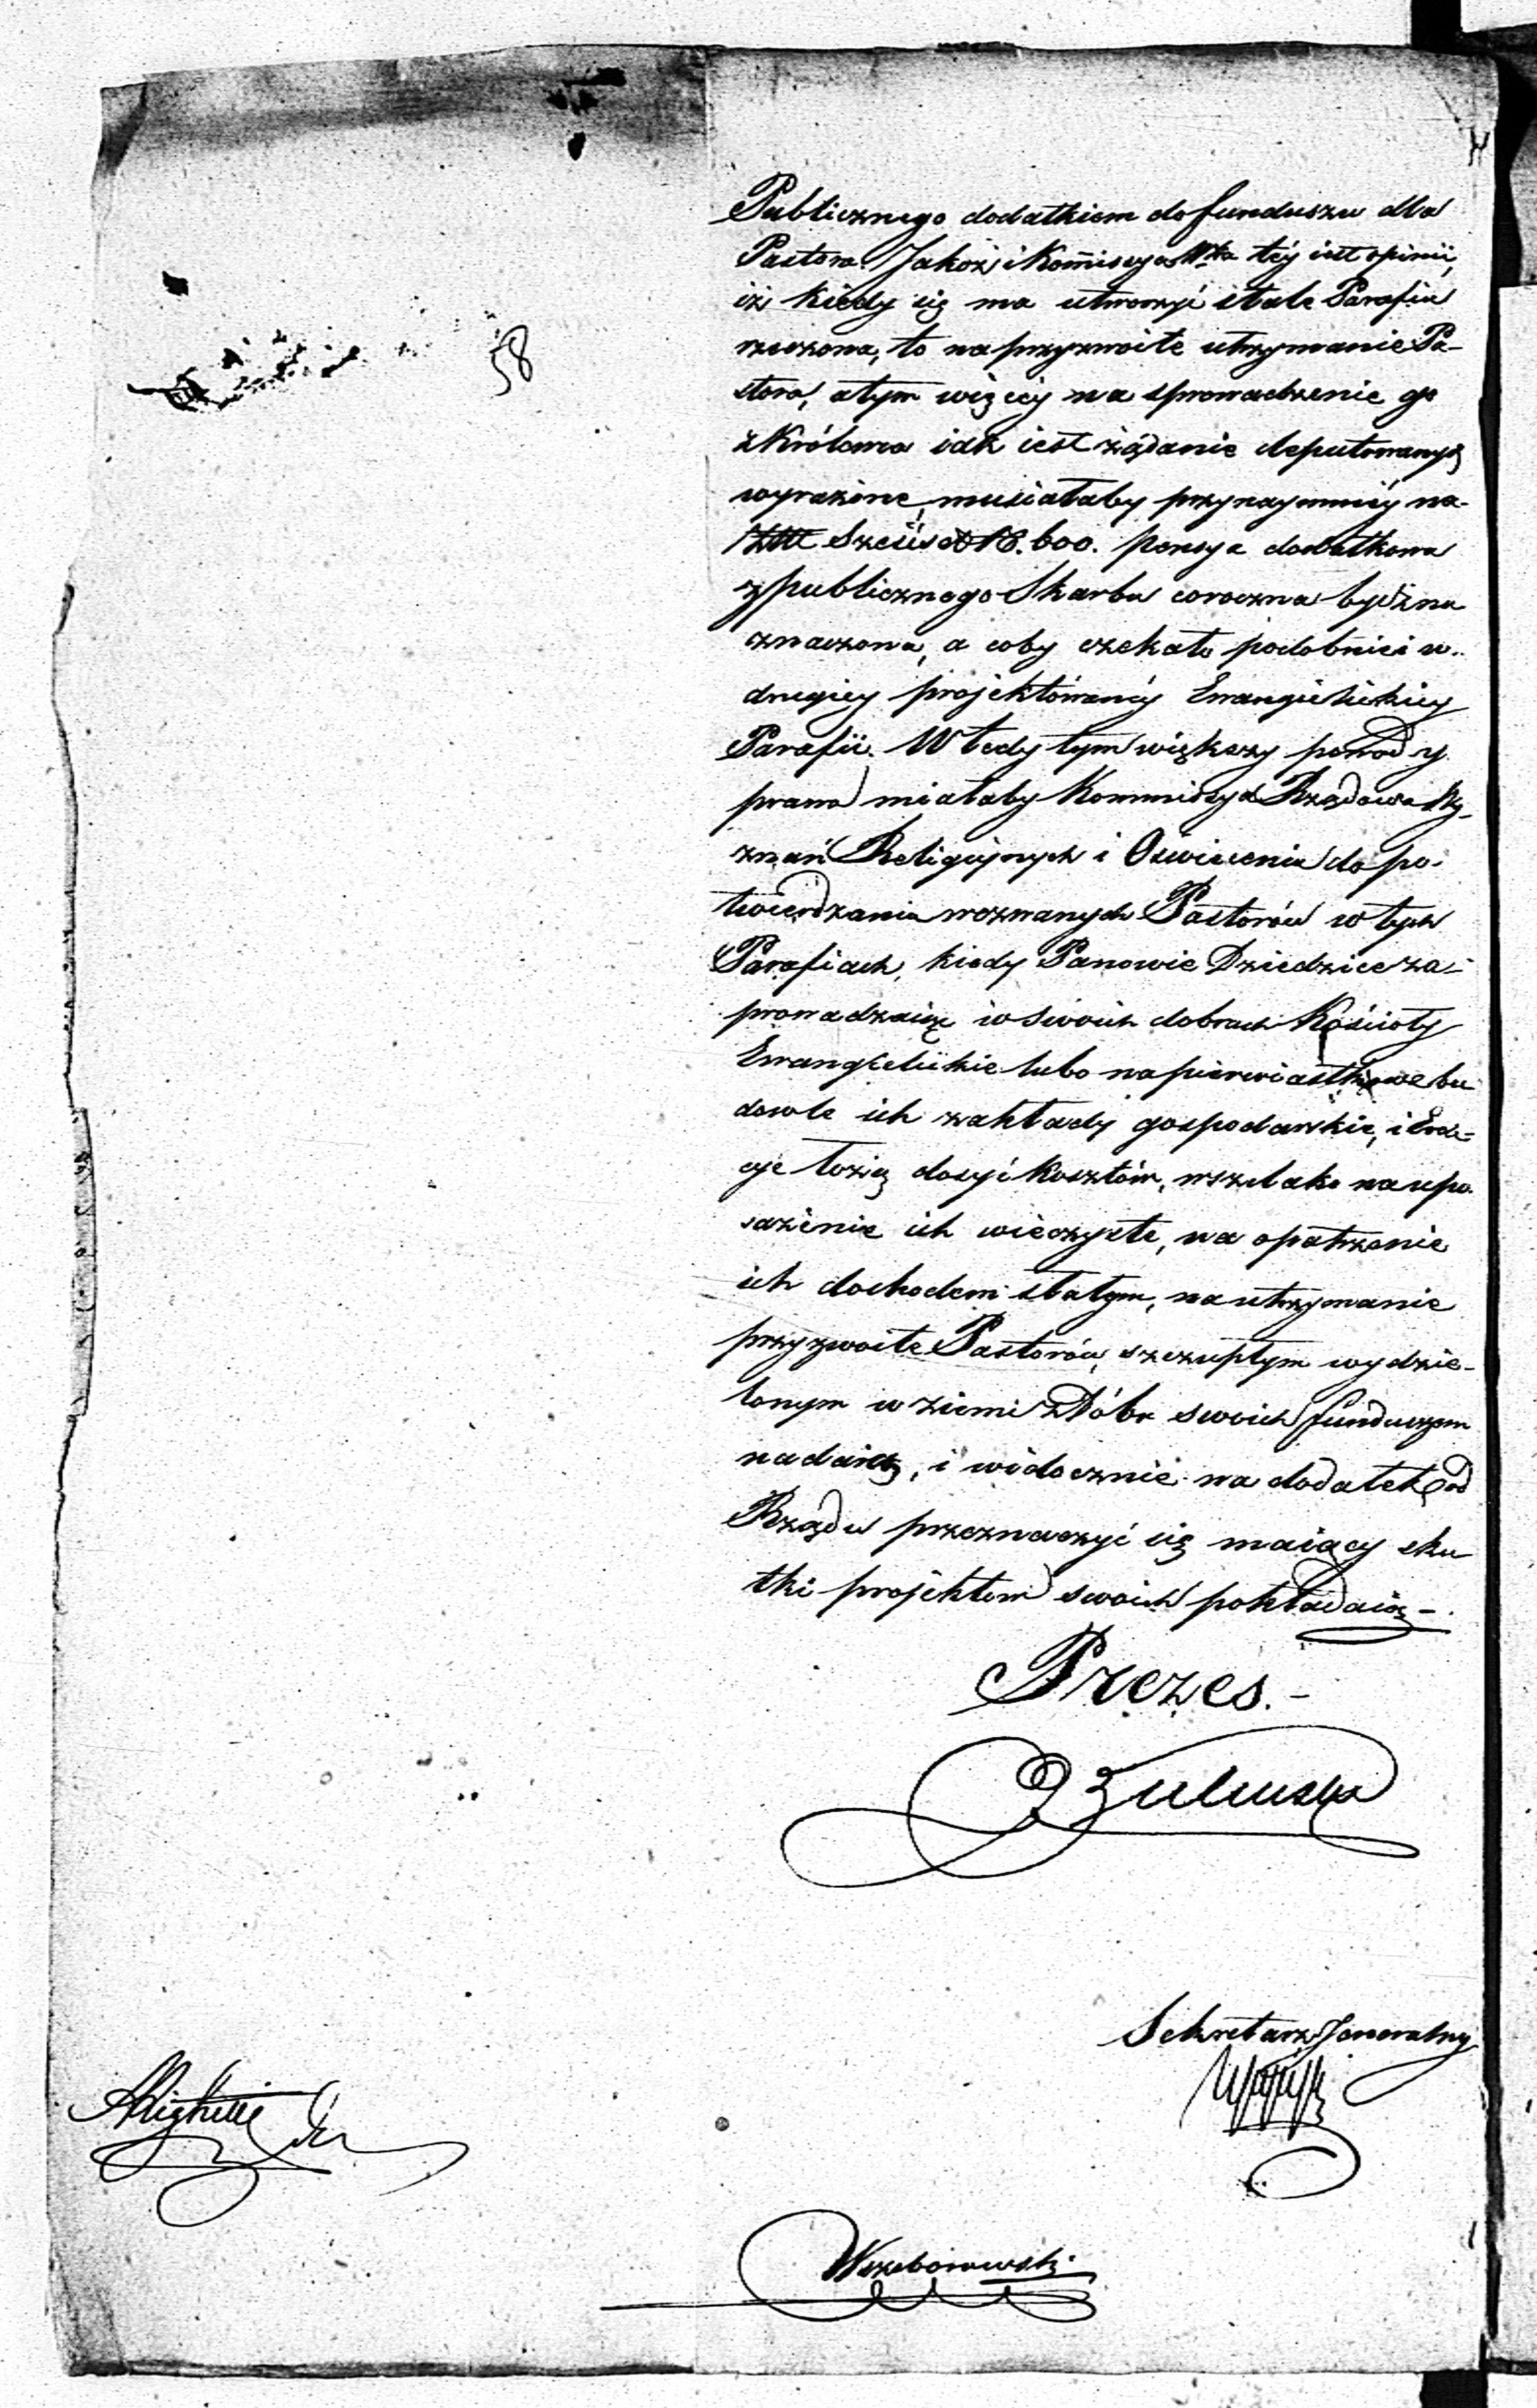 58
Publicznego dodatkiem do funduszu dla
Pastora. Jakoż i Kom̄issya Wdka téy iest opinii,
iż kiedy się ma utworzyć stale Parafia
rzeczona, to na przyzwoite utrzymanie Pa-
stora, a tym więcéy na sprowadzenie go
z Królewca iak iest żądanie deputowanych
wyrażone, musiałaby przynaymniéy na
Sześćset 600. pensya dodatkowa
z publicznego Skarbu coroczna bydź na
znaczona, a coby czekało podobnież w
drugiey projektowanéy Ewangielickiey
Parafii. Wtedy tym większy powod y
prawo miałaby Kommissya Rządowa Wy-
znań Religijnych i Oświecenia do po-
twierdzania wezwanych Pastorów w tych
Parafiach, kiedy Panowie Dziedzice za-
prowadzaiąc w swoich dobrach Kościoły
Ewangelickie lubo na pierwiastkowe bu
dowle ich zakłady gospodarskie, i Ere-
cye łożą dosyć kosztów, wszelako na upo-
sażenie ich wieczyste, na opatrzenie
ich dochodem stałym, na utrzymanie
przyzwoite Pastorów, szczupłym wydzie-
lonym w ziemi z Dóbr swoich funduszem
nadaią, i widocznie na dodatek od
Rządu przeznaczyć się maiący sku
tki projektom swoich pokładaią -.
Prezes. -
Sekretarz Jeneralny
Wszeborowski